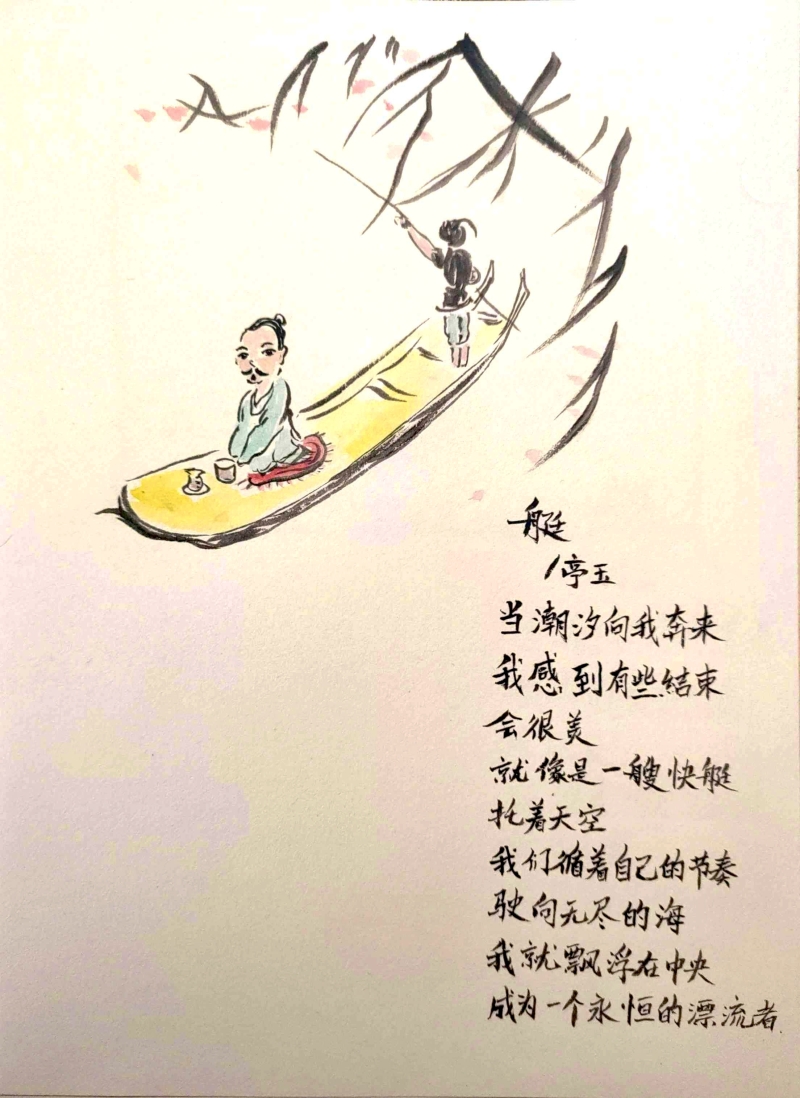 艇
/亭玉
当潮汐向我奔来
我感到有些结束
会很美
就像是一艘快艇
托着天空
我们循着自己的节奏
驶向无尽的海
我就飘浮在中央
成为一个永恒的漂流者